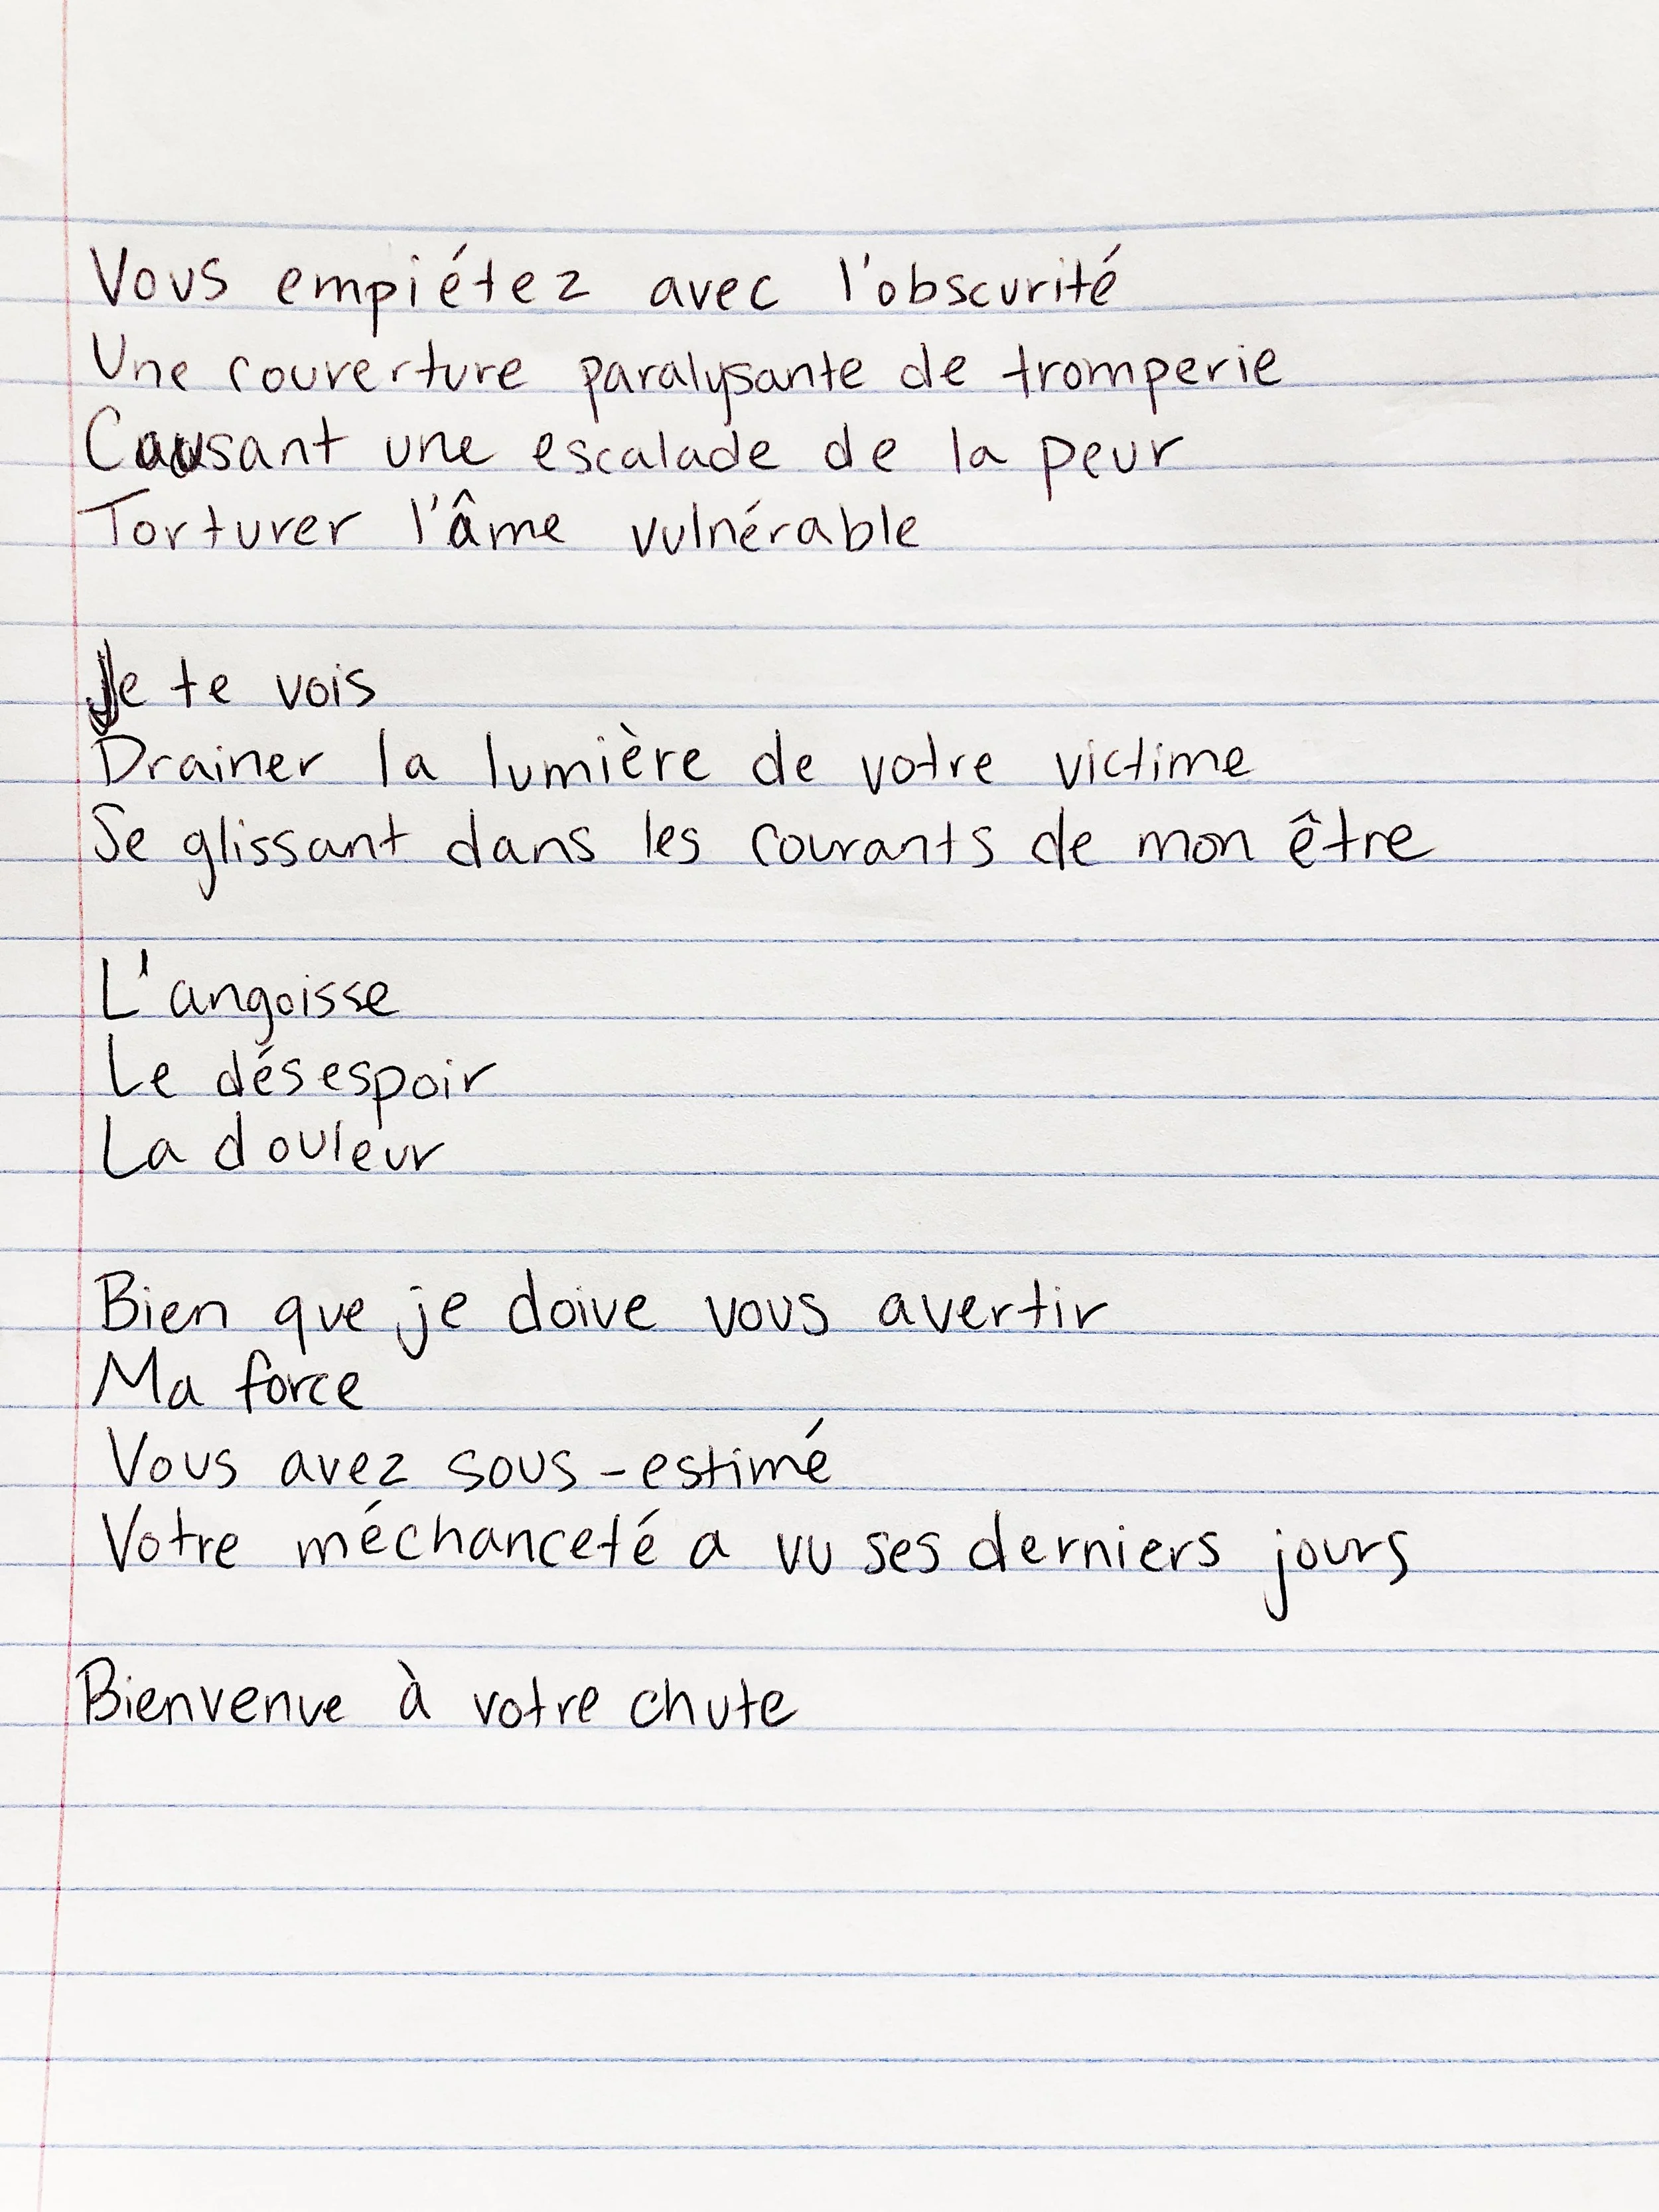 Vous empiétez avec l'obscurité
Une couverture paralysante de tromperie
Causant une escalade de la peur
Torturer l'âme vulnérable
Je te vois
Drainer la lumière de votre victime
Se glissant dans les courants de mon être
L'angoisse
Le désespoir
La douleur
Bien que je doive vous avertir
Ma force
Vous avez sous-estimé
Votre méchanceté a vu ses derniers jours
Bienvenue à votre chute